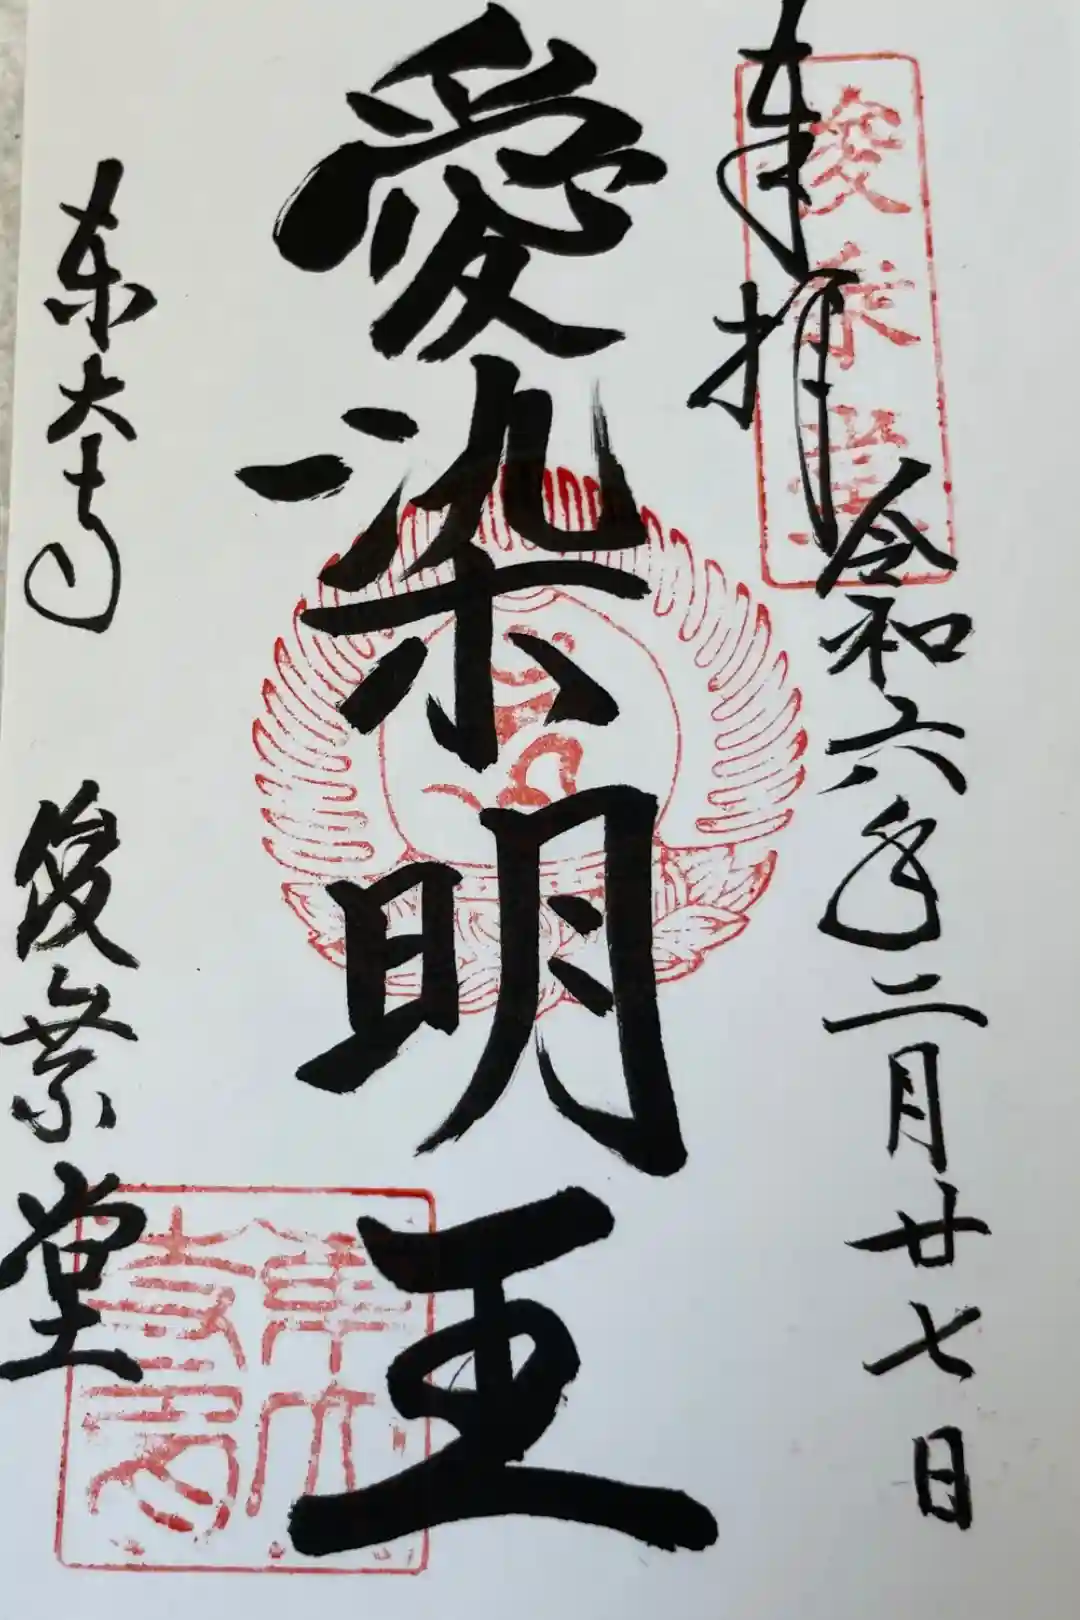 奉拝
俊乗堂
令和六年二月廿七日
愛染明王
東大寺 俊乗堂